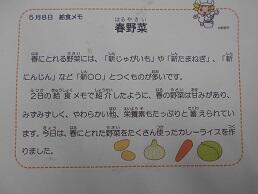 5月8日　給食メモ
春野菜
はるやさい
春にとれる野菜には、「新じゃがいも」や「新たまねぎ」、「新
にんじん」など「新〇〇」とつくものが多いです。
2日の給食メモで紹介したように、春の野菜は甘みがあり、
みずみずしく、やわらかい他、栄養素もたっぷりと蓄えられてい
ます。今日は、春にとれた野菜をたくさん使ったカレーライスを作
りました。